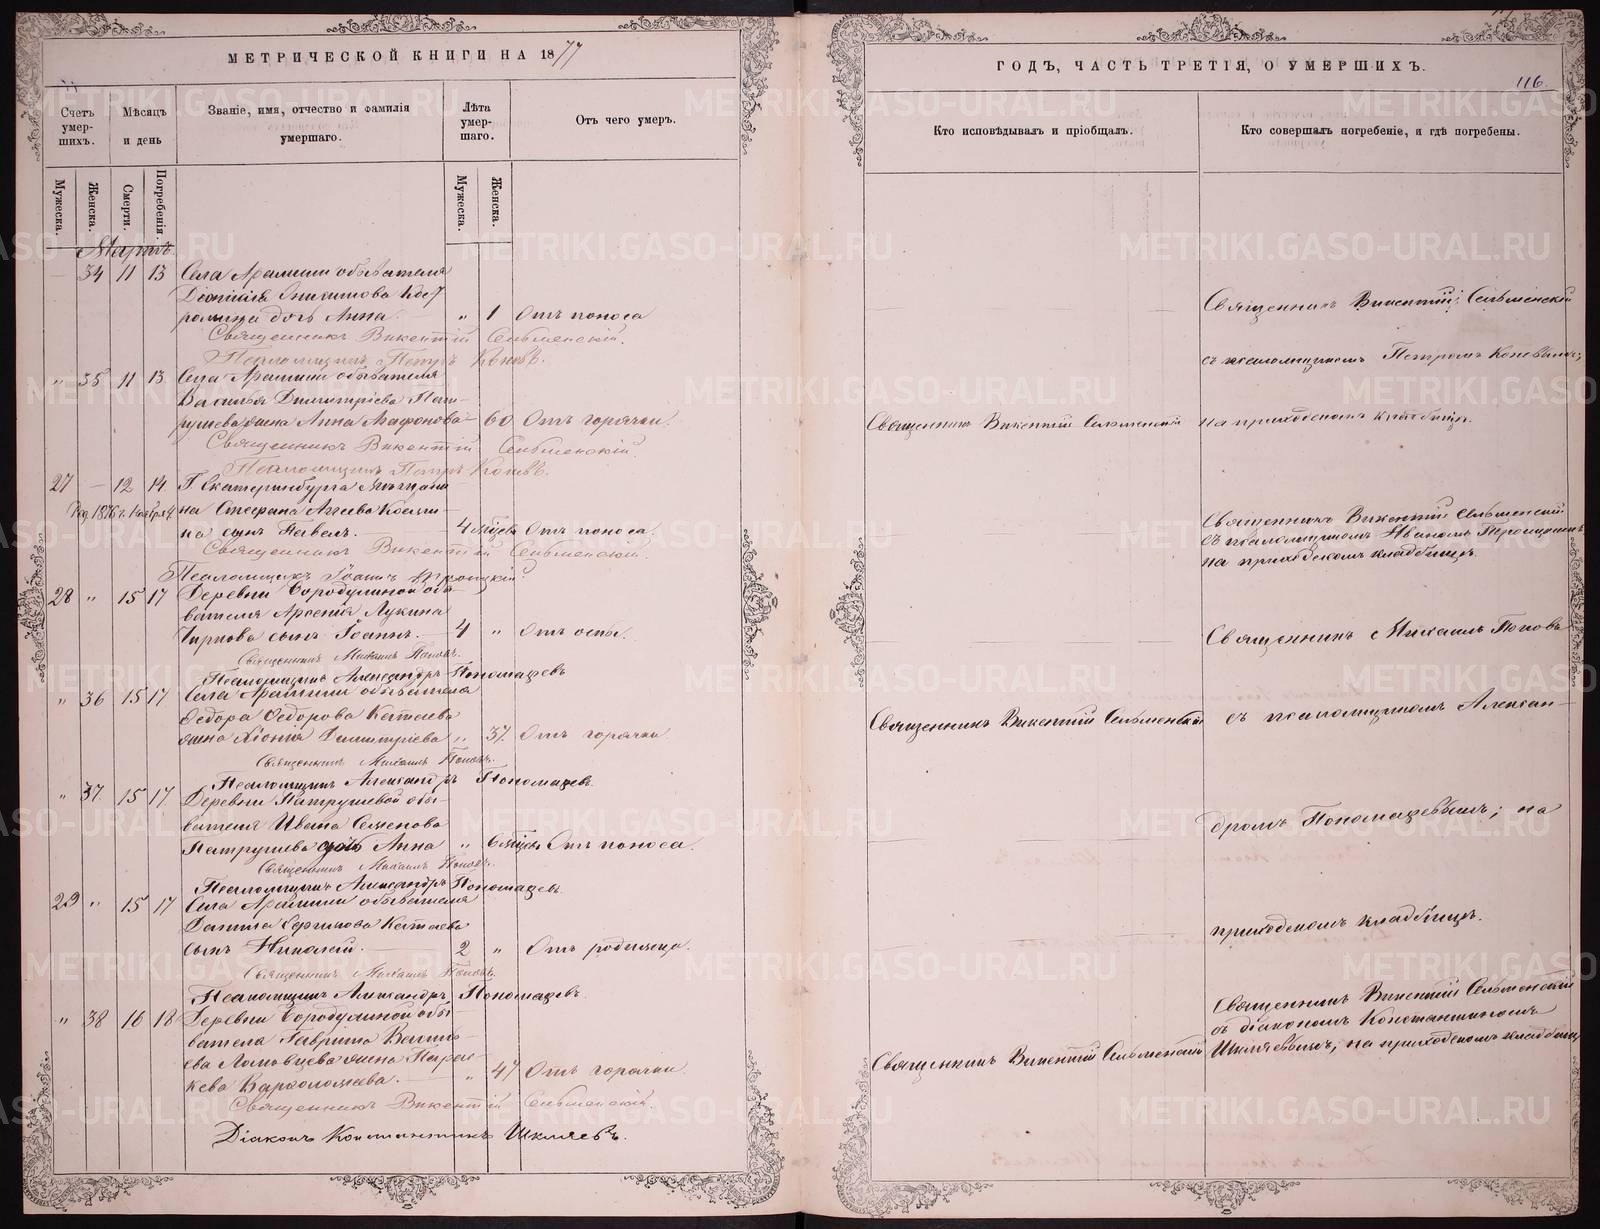 МЕТРИЧЕСКОЙ КНИГИ НА 1877
Счетъ умер-шихъ.
Мѣсяцъ и день
Званіе, имя, отчество и фамилія умершаго.
Лѣта умер-шаго.
Отъ чего умеръ.
Мужеска.
Женска.
Смерти.
Погребенія.
Мужеска.
Женска.
Мартъ.
34 11 13 Села Арамили обывателя
дочь Анна " 1 Отъ поноса
Священникъ Викентій Сельменскій.
Псаломщикъ Петръ
" 35 11 13 Села Арамили обывателя
Василья Димитріева Пат-
рушева жена Анна Агафонова 60 Отъ горячки.
Священникъ Викентій Сельменскій.
Псаломщикъ Петръ
27 — 12 14 Г. Екатеринбурга мѣщани-
на Стефана Агѣева
на сынъ Павелъ. 4 мѣсяца Отъ поноса
Священникъ Викентій Сельменскій.
Псаломщикъ Іоаннъ
28 " 15 17 Деревни Бородулиной обы-
вателя Арсенія Лукина
Чиркова сынъ Іоаннъ. 4 " Отъ оспы.
Священникъ Михаилъ Поповъ.
Псаломщикъ Александръ Пономаревъ
" 36 15 17 Села Арамили обывателя
Ѳедора Ѳедорова Катаева
жена Хіонія Димитріева " 37 Отъ горячки
Священникъ Михаилъ Поповъ.
Псаломщикъ Александръ Пономаревъ.
" 37 15 17 Деревни Патрушевой обы-
вателя Ивана Семенова
Патрушева дочь Анна " 6 мѣсяц. Отъ поноса.
Священникъ Михаилъ Поповъ.
Псаломщикъ Александръ Пономаревъ.
29 " 15 17 Села Арамили обывателя
Данила Катаева
сынъ Николай. 2 " Отъ родимца.
Священникъ Михаилъ Поповъ.
Псаломщикъ Александръ Пономаревъ.
" 38 16 18 Деревни Бородулиной обы-
вателя Гавріила Василь-
ева жена Парас-
кева Варѳоломеева. " 47 Отъ горячки.
Священникъ Викентій Сельменскій.
Діаконъ Константинъ Шкляевъ.
ГОДЪ, ЧАСТЬ ТРЕТІЯ, О УМЕРШИХЪ.
116
Кто исповѣдывалъ и пріобщалъ.
Кто совершалъ погребеніе, и гдѣ погребены.
Священникъ Викентій Сельменскій
съ псаломщикомъ Петромъ
Священникъ Викентій Сельменскій на приходскомъ кладбищѣ.
Священникъ Викентій Сельменскій
съ псаломщикомъ Иваномъ
на приходскомъ кладбищѣ.
Священникъ Михаилъ Поповъ
Священникъ Викентій Сельменскій съ псаломщикомъ Алексан-
дромъ Пономаревымъ; на
приходскомъ кладбищѣ.
Священникъ Викентій Сельменскій
съ діакономъ Константиномъ
Священникъ Викентій Сельменскій Шкляевымъ, на приходскомъ кладбищѣ
METRIKI.GASO-URAL.RU